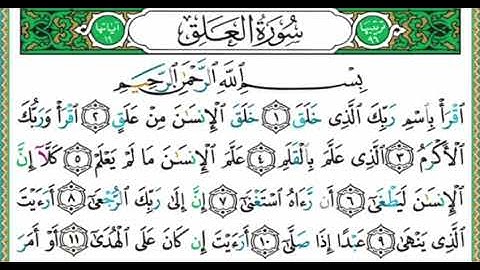 سُورَةُ الْعَلَقِ
بِسْمِ اللَّهِ الرَّحْمَٰنِ الرَّحِيمِ
اقْرَأْ بِاسْمِ رَبِّكَ الَّذِى خَلَقَ ١ خَلَقَ الْإِنسَٰنَ مِنْ عَلَقٍ ٢ اقْرَأْ وَرَبُّكَ
الْأَكْرَمُ ٣ الَّذِى عَلَّمَ بِالْقَلَمِ ٤ عَلَّمَ الْإِنسَٰنَ مَا لَمْ يَعْلَمْ ٥ كَلَّآ إِنَّ
الْإِنسَٰنَ لَيَطْغَىٰٓ ٦ أَن رَّءَاهُ اسْتَغْنَىٰٓ ٧ إِنَّ إِلَىٰ رَبِّكَ الرُّجْعَىٰٓ ٨ أَرَءَيْتَ
الَّذِى يَنْهَىٰ ٩ عَبْدًا إِذَا صَلَّىٰٓ ١٠ أَرَءَيْتَ إِن كَانَ عَلَى الْهُدَىٰٓ ١١ أَوْ أَمَرَ